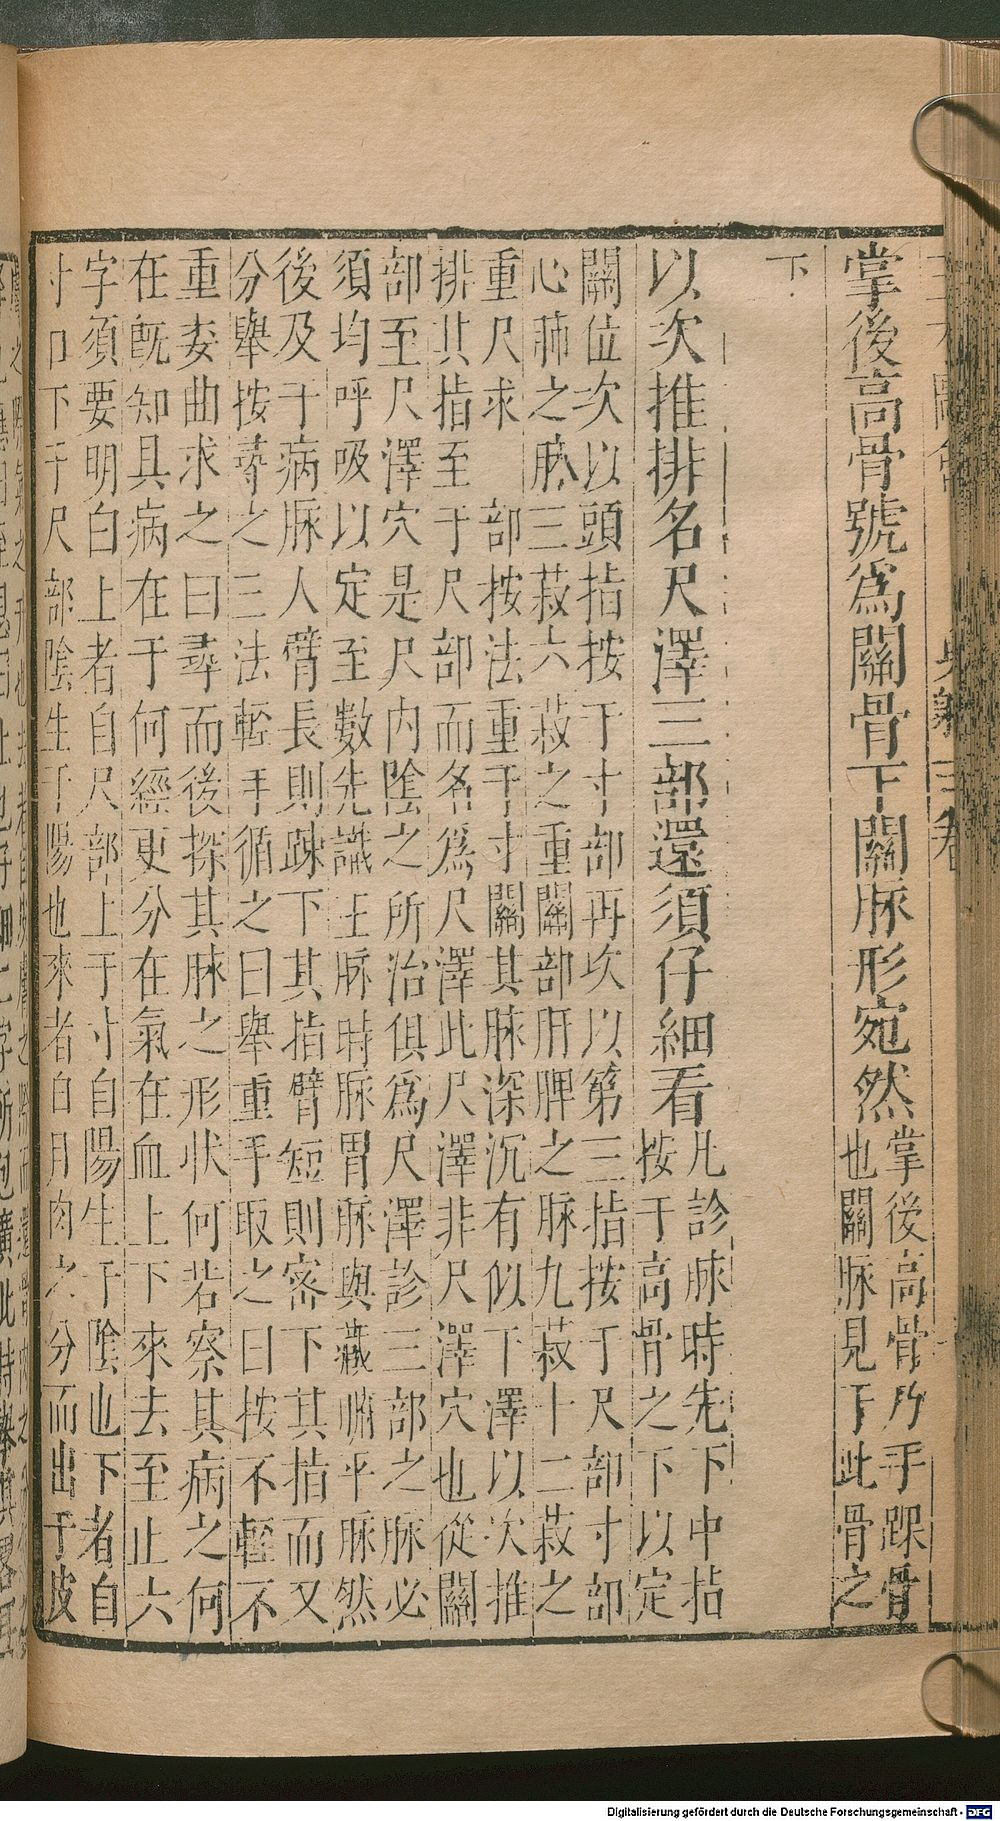 掌後高骨號爲關骨下關脉形宛然掌後高骨乃手踝骨
也關脉見于此骨之
下
以次推排名尺澤三部還須仔細看凡診脉時先下中指
按于高骨之下以定
關位次以頭指按于寸部再次以第三指按于尺部寸部
心肺之脉三菽六菽之重關部肝脾之脉九菽十二菽之
重尺求部按法重于寸關其脉深沉有似下澤以次推
排其指至于尺部而名爲尺澤此尺澤非尺澤穴也從關
部至尺澤穴是尺内陰之所治俱爲尺澤診三部之脉必
須均呼吸以定至數先識王脉時脉胃脉與藏腑平脉然
後及于病脉人臂長則踈下其指臂短則密下其指而又
分舉按尋之三法輕手循之曰舉重手取之曰按不輕不
重委曲求之曰尋而後探其脉之形状何若察其病之何
在既知具病在于何經更分在氣在血上下來去至止六
字須要明白上者自尺部上于寸自陽生于陰也下者自
寸口下于尺部陰生于陽也來者自月肉之分而出于皮
Digitalisierung gefördert durch die Deutsche Forschungsgemeinschaft - DFG